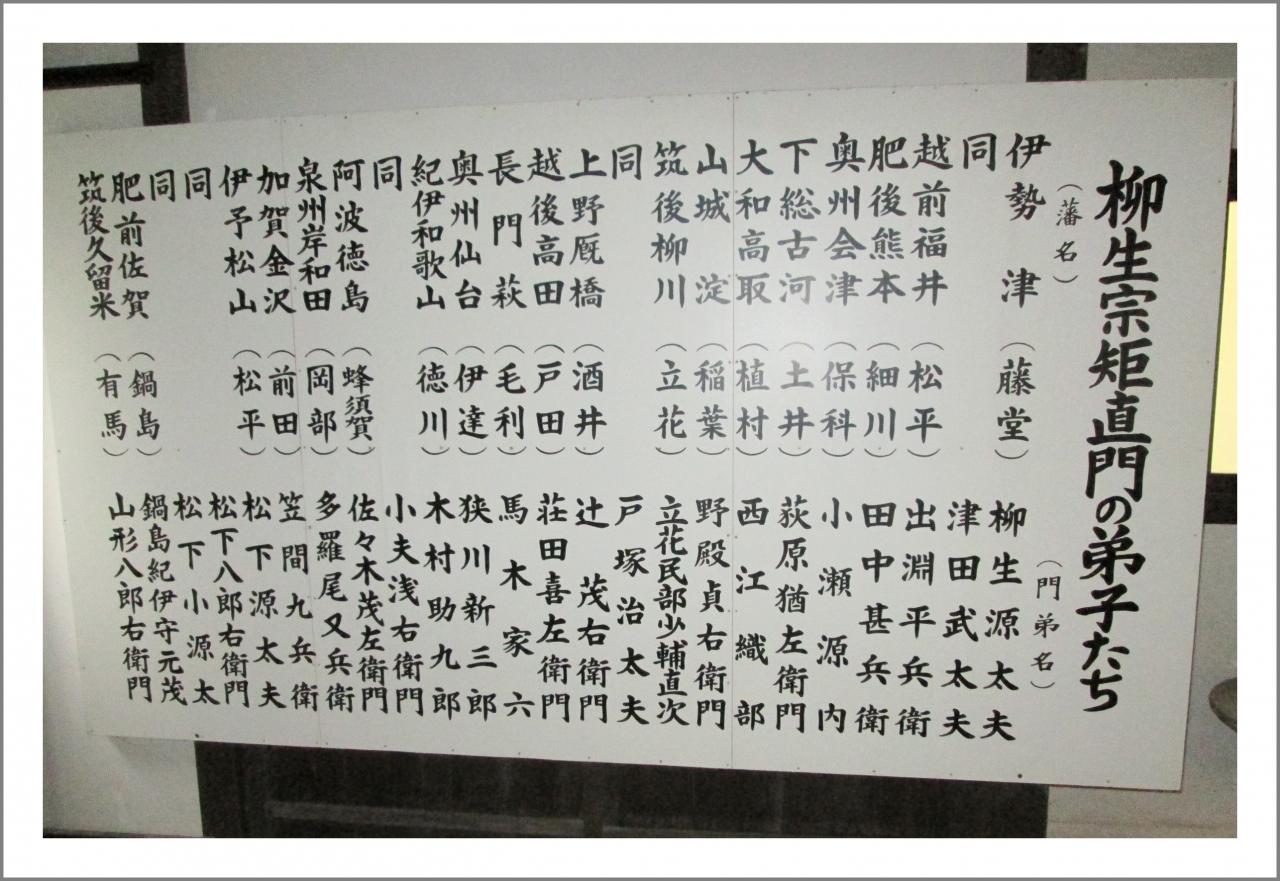 柳生宗矩直門の弟子たち
（藩名）（門弟名）
伊勢 津（藤堂）柳生源太夫
同 津田武太夫
越前福井（松平）出淵平兵衛
肥後熊本（細川）田中甚兵衛
奥州会津（保科）小瀬源内
下総古河（土井）荻原猶左衛門
大和高取（植村）西江織部
山城 淀（稲葉）野殿貞右衛門
筑後柳川（立花）立花民部少輔直次
同 戸塚治太夫
上野厩橋（酒井）辻茂右衛門
越後高田（戸田）荘田喜左衛門
長門 萩（毛利）馬木家六
奥州仙台（伊達）狭川新三郎
紀伊和歌山（徳川）木村助九郎
同 小夫浅右衛門
阿波徳島（蜂須賀）佐々木茂左衛門
泉州岸和田（岡部）多羅尾又兵衛
加賀金沢（前田）笠間九兵衛
伊予松山（松平）松下源太夫
同 松下八郎右衛門
同 松下小源太
肥前佐賀（鍋島）鍋島紀伊守元茂
筑後久留米（有馬）山形八郎右衛門